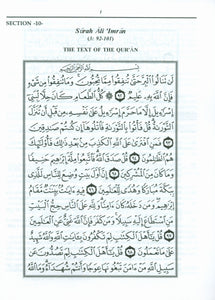 SECTION -10-
Sūrah Āli 'Imrān
(3: 92-101)
THE TEXT OF THE QUR'ĀN
لَن تَنَالُوا۟ ٱلْبِرَّ حَتَّىٰ تُنفِقُوا۟ مِمَّا تُحِبُّونَ ۚ وَمَا تُنفِقُوا۟ مِن شَىْءٍ
فَإِنَّ ٱللَّهَ بِهِۦ عَلِيمٌ ﴿٩٢﴾ كُلُّ ٱلطَّعَامِ كَانَ حِلًّا لِّبَنِىٓ
إِسْرَٰٓءِيلَ إِلَّا مَا حَرَّمَ إِسْرَٰٓءِيلُ عَلَىٰ نَفْسِهِۦ مِن قَبْلِ أَن تُنَزَّلَ
ٱلتَّوْرَىٰةُ ۗ قُلْ فَأْتُوا۟ بِٱلتَّوْرَىٰةِ فَٱتْلُوهَآ إِن كُنتُمْ صَٰدِقِينَ
﴿٩٣﴾ فَمَنِ ٱفْتَرَىٰ عَلَى ٱللَّهِ ٱلْكَذِبَ مِنۢ بَعْدِ ذَٰلِكَ فَأُو۟لَٰٓئِكَ
هُمُ ٱلظَّٰلِمُونَ ﴿٩٤﴾ قُلْ صَدَقَ ٱللَّهُ ۗ فَٱتَّبِعُوا۟ مِلَّةَ إِبْرَٰهِيمَ حَنِيفًا
وَمَا كَانَ مِنَ ٱلْمُشْرِكِينَ ﴿٩٥﴾ إِنَّ أَوَّلَ بَيْتٍ وُضِعَ لِلنَّاسِ لَلَّذِى
بِبَكَّةَ مُبَارَكًا وَهُدًى لِّلْعَٰلَمِينَ ﴿٩٦﴾ فِيهِ ءَايَٰتٌۢ بَيِّنَٰتٌ مَّقَامُ
إِبْرَٰهِيمَ ۖ وَمَن دَخَلَهُۥ كَانَ ءَامِنًا ۗ وَلِلَّهِ عَلَى ٱلنَّاسِ حِجُّ ٱلْبَيْتِ
مَنِ ٱسْتَطَاعَ إِلَيْهِ سَبِيلًا ۚ وَمَن كَفَرَ فَإِنَّ ٱللَّهَ غَنِىٌّ عَنِ ٱلْعَٰلَمِينَ
﴿٩٧﴾ قُلْ يَٰٓأَهْلَ ٱلْكِتَٰبِ لِمَ تَكْفُرُونَ بِـَٔايَٰتِ ٱللَّهِ وَٱللَّهُ شَهِيدٌ
عَلَىٰ مَا تَعْمَلُونَ ﴿٩٨﴾ قُلْ يَٰٓأَهْلَ ٱلْكِتَٰبِ لِمَ تَصُدُّونَ عَن
سَبِيلِ ٱللَّهِ مَنْ ءَامَنَ تَبْغُونَهَا عِوَجًا وَأَنتُمْ شُهَدَآءُ ۗ وَمَا ٱللَّهُ